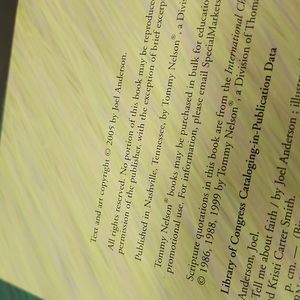 Text and art copyright © 2005 by Joel Anderson.
All rights reserved. No portion of this book may be reproduced
permission of the publisher, with the exception of brief excerp
Published in Nashville, Tennessee, by Tommy Nelson®, a Divi
Tommy Nelson® books may be purchased in bulk for education
promotional use. For information, please email SpecialMarkets
Scripture quotations in this book are from the International Ch
© 1986, 1988, 1999 by Tommy Nelson®, a Division of Thom
Library of Congress Cataloging-in-Publication Data
Anderson, Joel.
ell me about faith / by Joel Anderson ; illustr
d Kristi Carter Smith.
p. cm. —